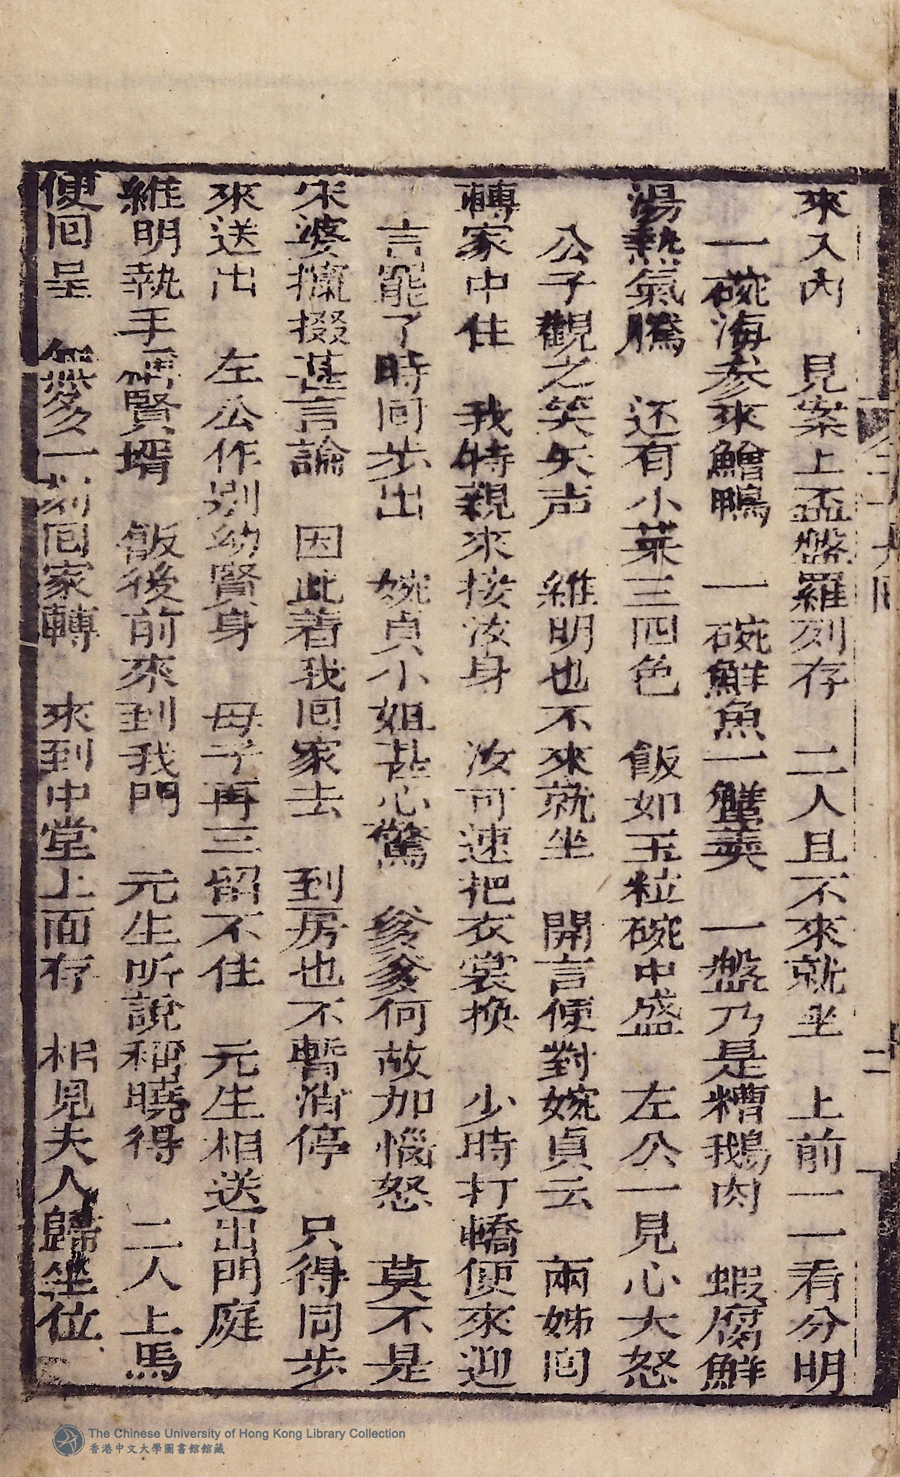 來入內　見案上盃盤羅列存　二人且不來就坐　上前一一看分明
一碗海参來鱠鴨　一碗鮮魚一蟹羹　一盤乃是糟鵝肉　蝦腐鮮
湯熱氣騰　还有小菜三四色　飯如玉粒碗中盛　左公一見心大怒
公子觀之笑失声　維明也不來就坐　開言便對婉貞云　兩姊囘
轉家中住　我特親來接汝身　汝可速把衣裳換　少時打轎便來迎
言罷了時囘步出　婉貞小姐甚心驚　爹爹何故加惱怒　莫不是
宋婆攛掇甚言論　因此着我囘家去　到房也不暫消停　只得同步
來送出　左公作别幼賢身　母子再三留不住　元生相送出門庭
維明執手　賢壻　飯後前來到我門　元生听說稱曉得　二人上馬
便囘呈　無多一刻囘家轉　來到中堂上面存　相見夫人歸坐位
二
The Chinese University of Hong Kong Library Collection
香港中文大學圖書館館藏